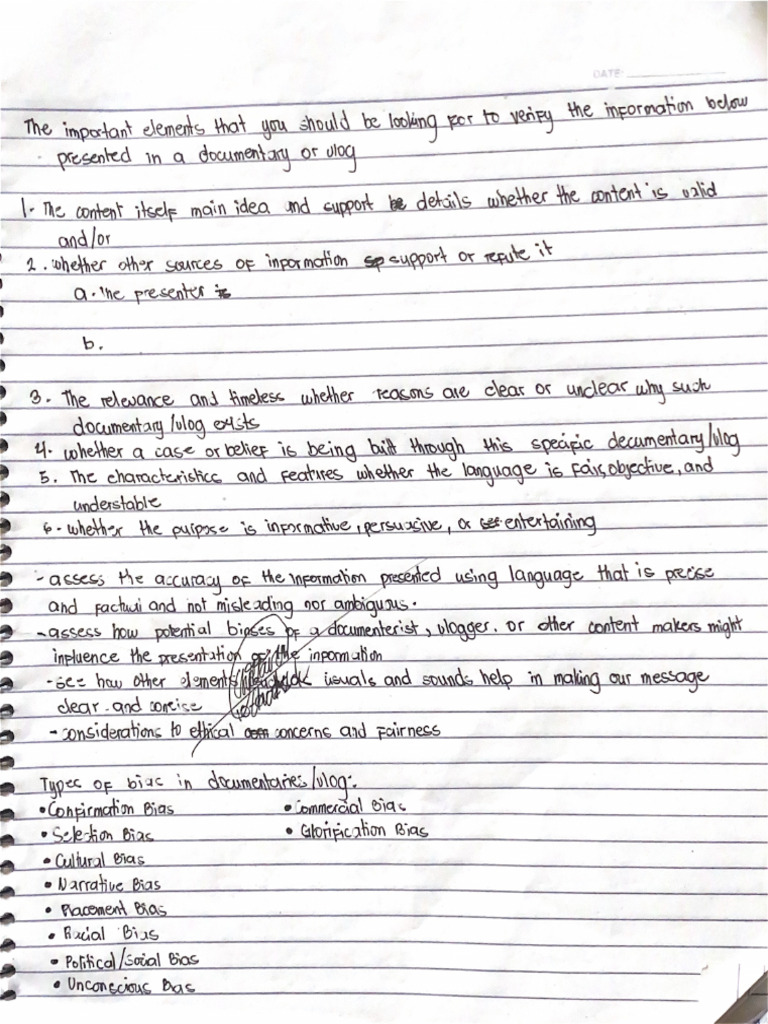 DATE:
The important elements that you should be looking for to verify the information below
presented in a documentary or vlog
1. The content itself main idea and support details whether the content is valid
and/or
2. whether other sources of information support or refute it
a. The presenter
b.
3. The relevance and timeless whether reasons are clear or unclear why such
documentary/vlog exists
4. whether a case or belief is being built through this specific documentary/vlog
5. The characteristics and features whether the language is fair, objective, and
understable
6. whether the purpose is informative, persuasive, or entertaining
- assess the accuracy of the information presented using language that is precise
and factual and not misleading nor ambiguous.
- assess how potential biases of a documenterist, vlogger. or other content makers might
influence the presentation of the information
- see how other elements visuals and sounds help in making our message
clear and concise
- considerations to ethical concerns and fairness
Types of bias in documentaries/vlog:
• Confirmation Bias • Commercial Bias
• Selection Bias • Glorification Bias
• Cultural Bias
• Narrative Bias
• Placement Bias
• Racial Bias
• Political/Social Bias
• Unconscious Bias